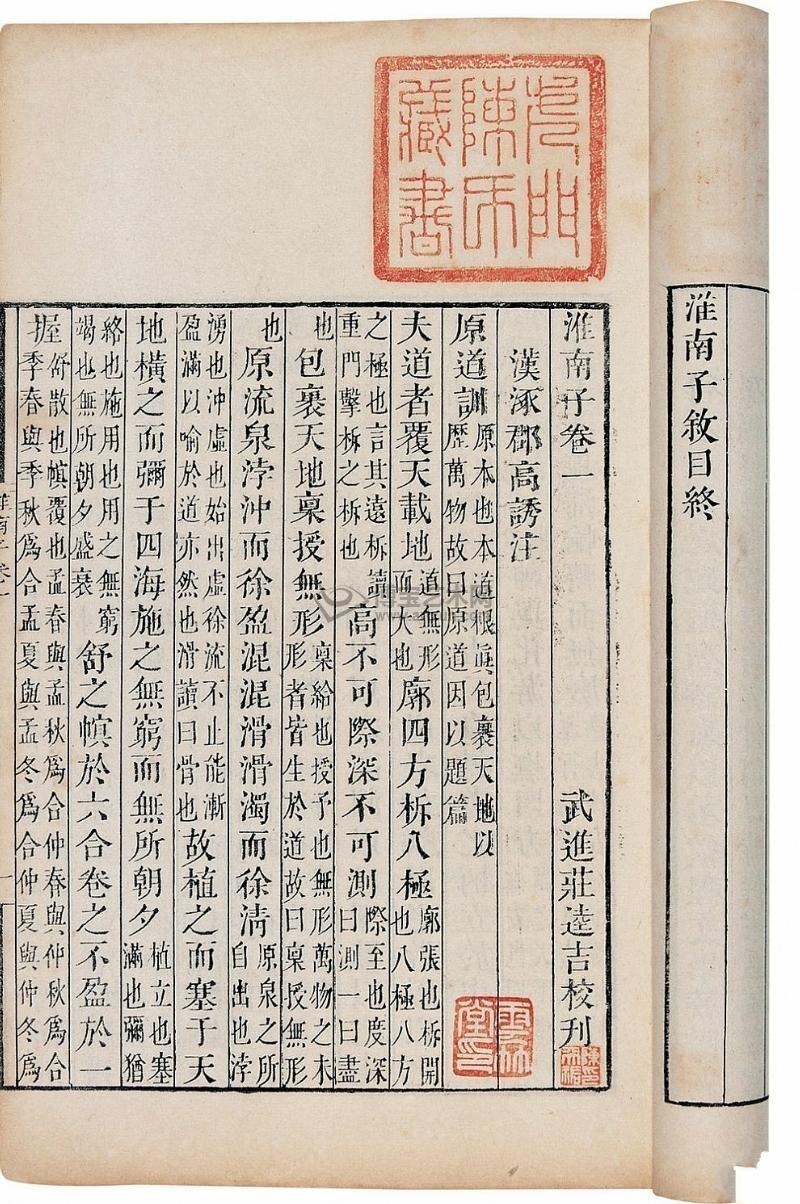 淮南子敘目終
門陳氏藏書
淮南子卷一 武進莊逵吉校刊
漢涿郡高誘注
原道訓 原本也本道根眞包裹天地以歷萬物故曰原道因以題篇
夫道者覆天載地 道無形而大也 廓四方柝八極 廓張也柝開也八極八方
之極也言其遠柝讀重門擊柝之柝也 高不可際深不可測 際至也度深曰測一曰盡
也 包裹天地稟授無形 稟給也授予也無形萬物之未形者皆生於道故曰稟授無形
也 原流泉浡沖而徐盈混混滑滑濁而徐清 原泉之所自出也浡
湧也沖虛也始出虛徐流不止能漸盈滿以喻於道亦然也滑讀曰骨也 故植之而塞于天
地橫之而彌于四海施之無窮而無所朝夕 植立也塞滿也彌猶
絡也施用也用之無窮竭也無所朝夕盛衰 舒之幎於六合卷之不盈於一
握 舒散也幎覆也孟春與孟秋爲合仲春與仲秋爲合季春與季秋爲合孟夏與孟冬爲合仲夏與仲冬爲
淮南子卷一
一
博宝艺术网